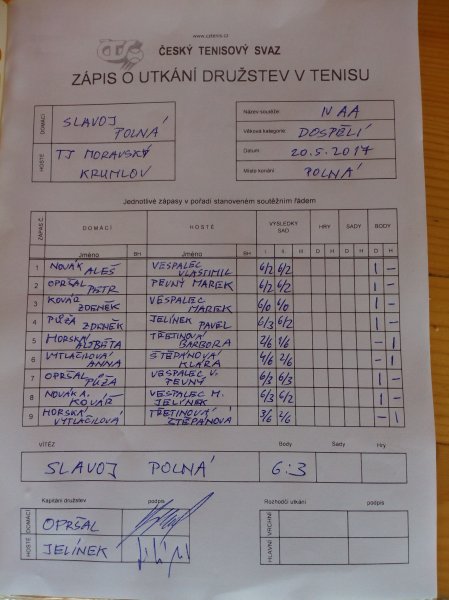 www.cztenis.cz
ČTS ČESKÝ TENISOVÝ SVAZ
ZÁPIS O UTKÁNÍ DRUŽSTEV V TENISU
DOMÁCÍ SLAVOJ POLNÁ
HOSTÉ TJ MORAVSKÝ KRUMLOV
Název soutěže: IV AA
Věková kategorie: DOSPĚLÍ
Datum: 20.5.2017
Místo konání: POLNÁ
Jednotlivé zápasy v pořadí stanoveném soutěžním řádem
ZÁPAS Č. DOMÁCÍ HOSTÉ VÝSLEDKY SAD HRY SADY BODY
Jméno BH Jméno BH I. II. III. D H D H D H
1 NOVÁK ALEŠ VESPALEC VLASTIMIL 6/2 6/2 1 –
2 OPRŠAL PETR PEVNÝ MAREK 6/2 6/2 1 –
3 KOVÁŘ ZDENĚK VESPALEC MAREK 6/0 6/0 1 –
4 PŮŽA ZDENĚK JELÍNEK PAVEL 6/3 6/2 1 –
5 HORSKÁ ALŽBĚTA TŘETINOVÁ BARBORA 2/6 1/6 – 1
6 VYTLAČILOVÁ ANNA ŠTĚPÁNOVÁ KLÁRA 4/6 2/6 – 1
7 OPRŠAL PŮŽA VESPALEC V. PEVNÝ 6/3 6/3 1 –
8 NOVÁK A. KOVÁŘ VESPALEC M. JELÍNEK 6/3 6/2 1 –
9 HORSKÁ VYTLAČILOVÁ TŘETINOVÁ ŠTĚPÁNOVÁ 3/6 2/6 – 1
VÍTĚZ Body Sady Hry
SLAVOJ POLNÁ 6:3
Kapitáni družstev podpis Rozhodčí utkání podpis
DOMÁCÍ OPRŠAL VRCHNÍ
HOSTÉ JELÍNEK HLAVNÍ